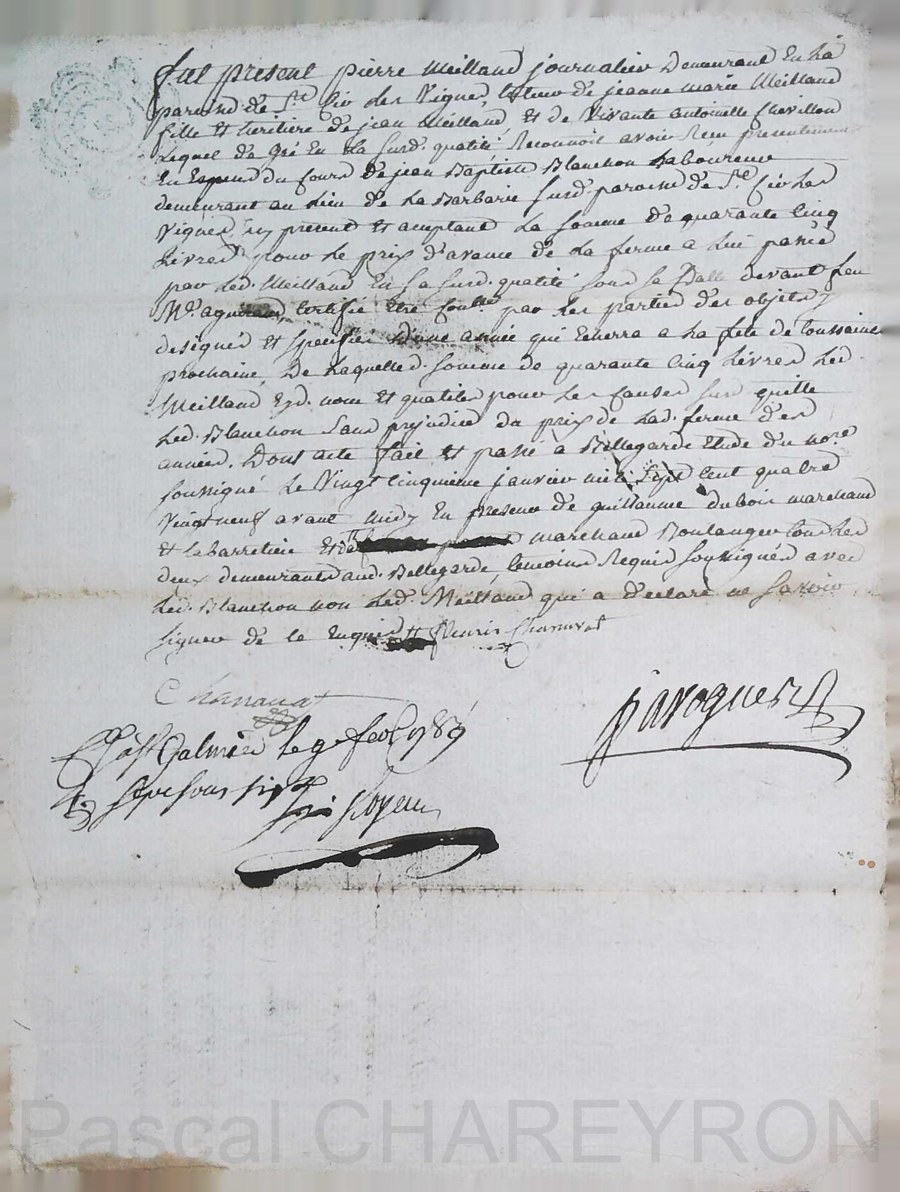 fut present pierre Meilland journalier Demeurant En la
paroisse de St Cir les Vignes, tuteur de jeanne marie Meilland
fille et heritiere de jean Meilland, et de Vivante antoinette Chevillon
Lequel de gré En la susd. qualité Reconnoit avoir Reçu presentement
En Especes du cours de jean Baptiste Blanchon Laboureur
demeurant au Lieu de La Barbarie susd. paroisse de St Cir les
Vignes, icy present et acceptant La somme de quarante Cinq
Livres pour le prix d'avance de La ferme a lui passée
par Led. Meilland En sa susd. qualité sous sa Datte devant feu
Me certifie etre Contle par les parties des objets y
designés et specifiés d'une année qui Echerra a la fete de toussaint
prochaine, De Laquelle d. somme de quarante Cinq Livres Led.
Meilland Esd. nom et qualités pour les causes sus quitte
Led. Blanchon sans prejudice du prix de Lad. ferme des
années. Dont acte fait et passé a Bellegarde Etude du nore
soussigné Le Vingt Cinquieme janvier mil sept Cent quatre
Vingt neuf avant midy En presence de guillaume dubois marchand
et Cabarretier Et de marchand Boulanger tous Les
deux demeurants aud. Bellegarde, temoins Requis soussignés avec
Led. Blanchon non Led. Meilland qui a Declaré ne savoir
signer de ce Enquis fleuris Chanavat
Chanavat
paroguer
Cé a St Galmier le 9e fevr 1789
Rç sept sous six d
Pascal CHAREYRON